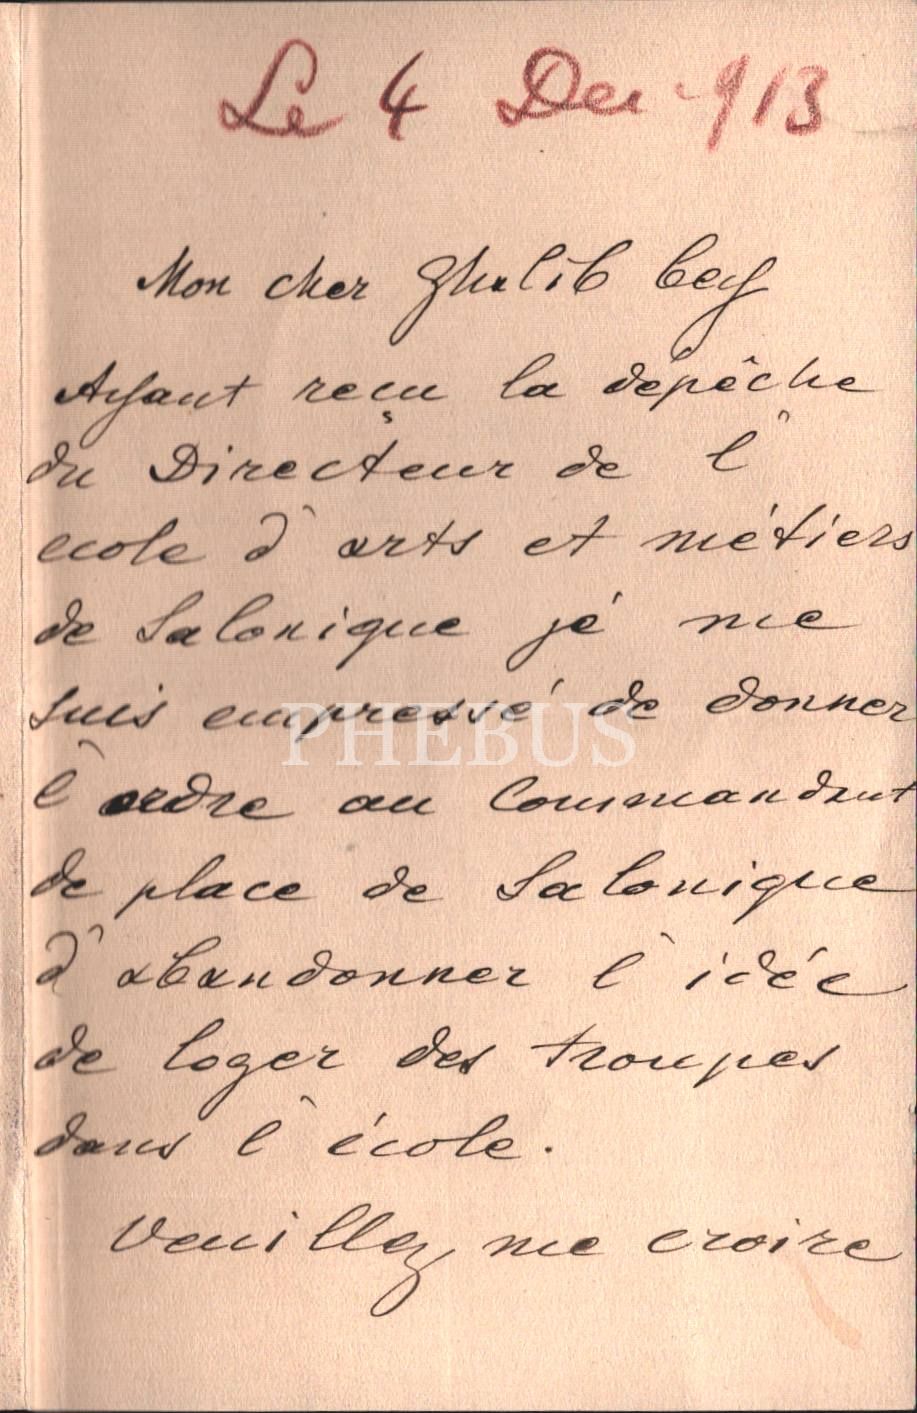 Le 4 Dec. 913
Mon cher Ghalib bey
Ayant reçu la dépêche
du Directeur de l'
ecole d'arts et métiers
de Salonique jé me
suis empressé de donner
l'ordre au Commandant
de place de Salonique
d'abandonner l'idée
de loger des troupes
dans l'école.
Veuillez me croire
PHEBUS